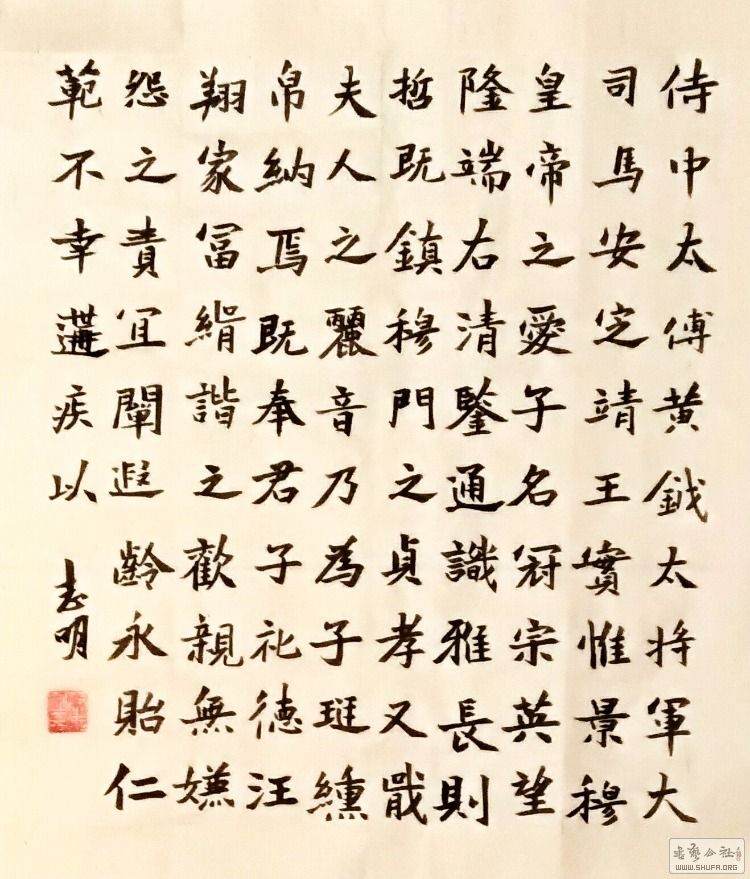 侍中太傅黄鉞太将軍大
司馬安定靖王實惟景穆
皇帝之愛子名冠宗英望
隆端右清鑒通識雅長則
哲既鎮穆門之貞孝又戢
夫人之麗音乃為子珽纁
帛納焉既奉君子礼德汪
翔家冨緝諧之歡親無嫌
怨之責宜闡遐齡永貽仁
範不幸遘疾以
志明
書藝公社
WWW.SHUFA.ORG